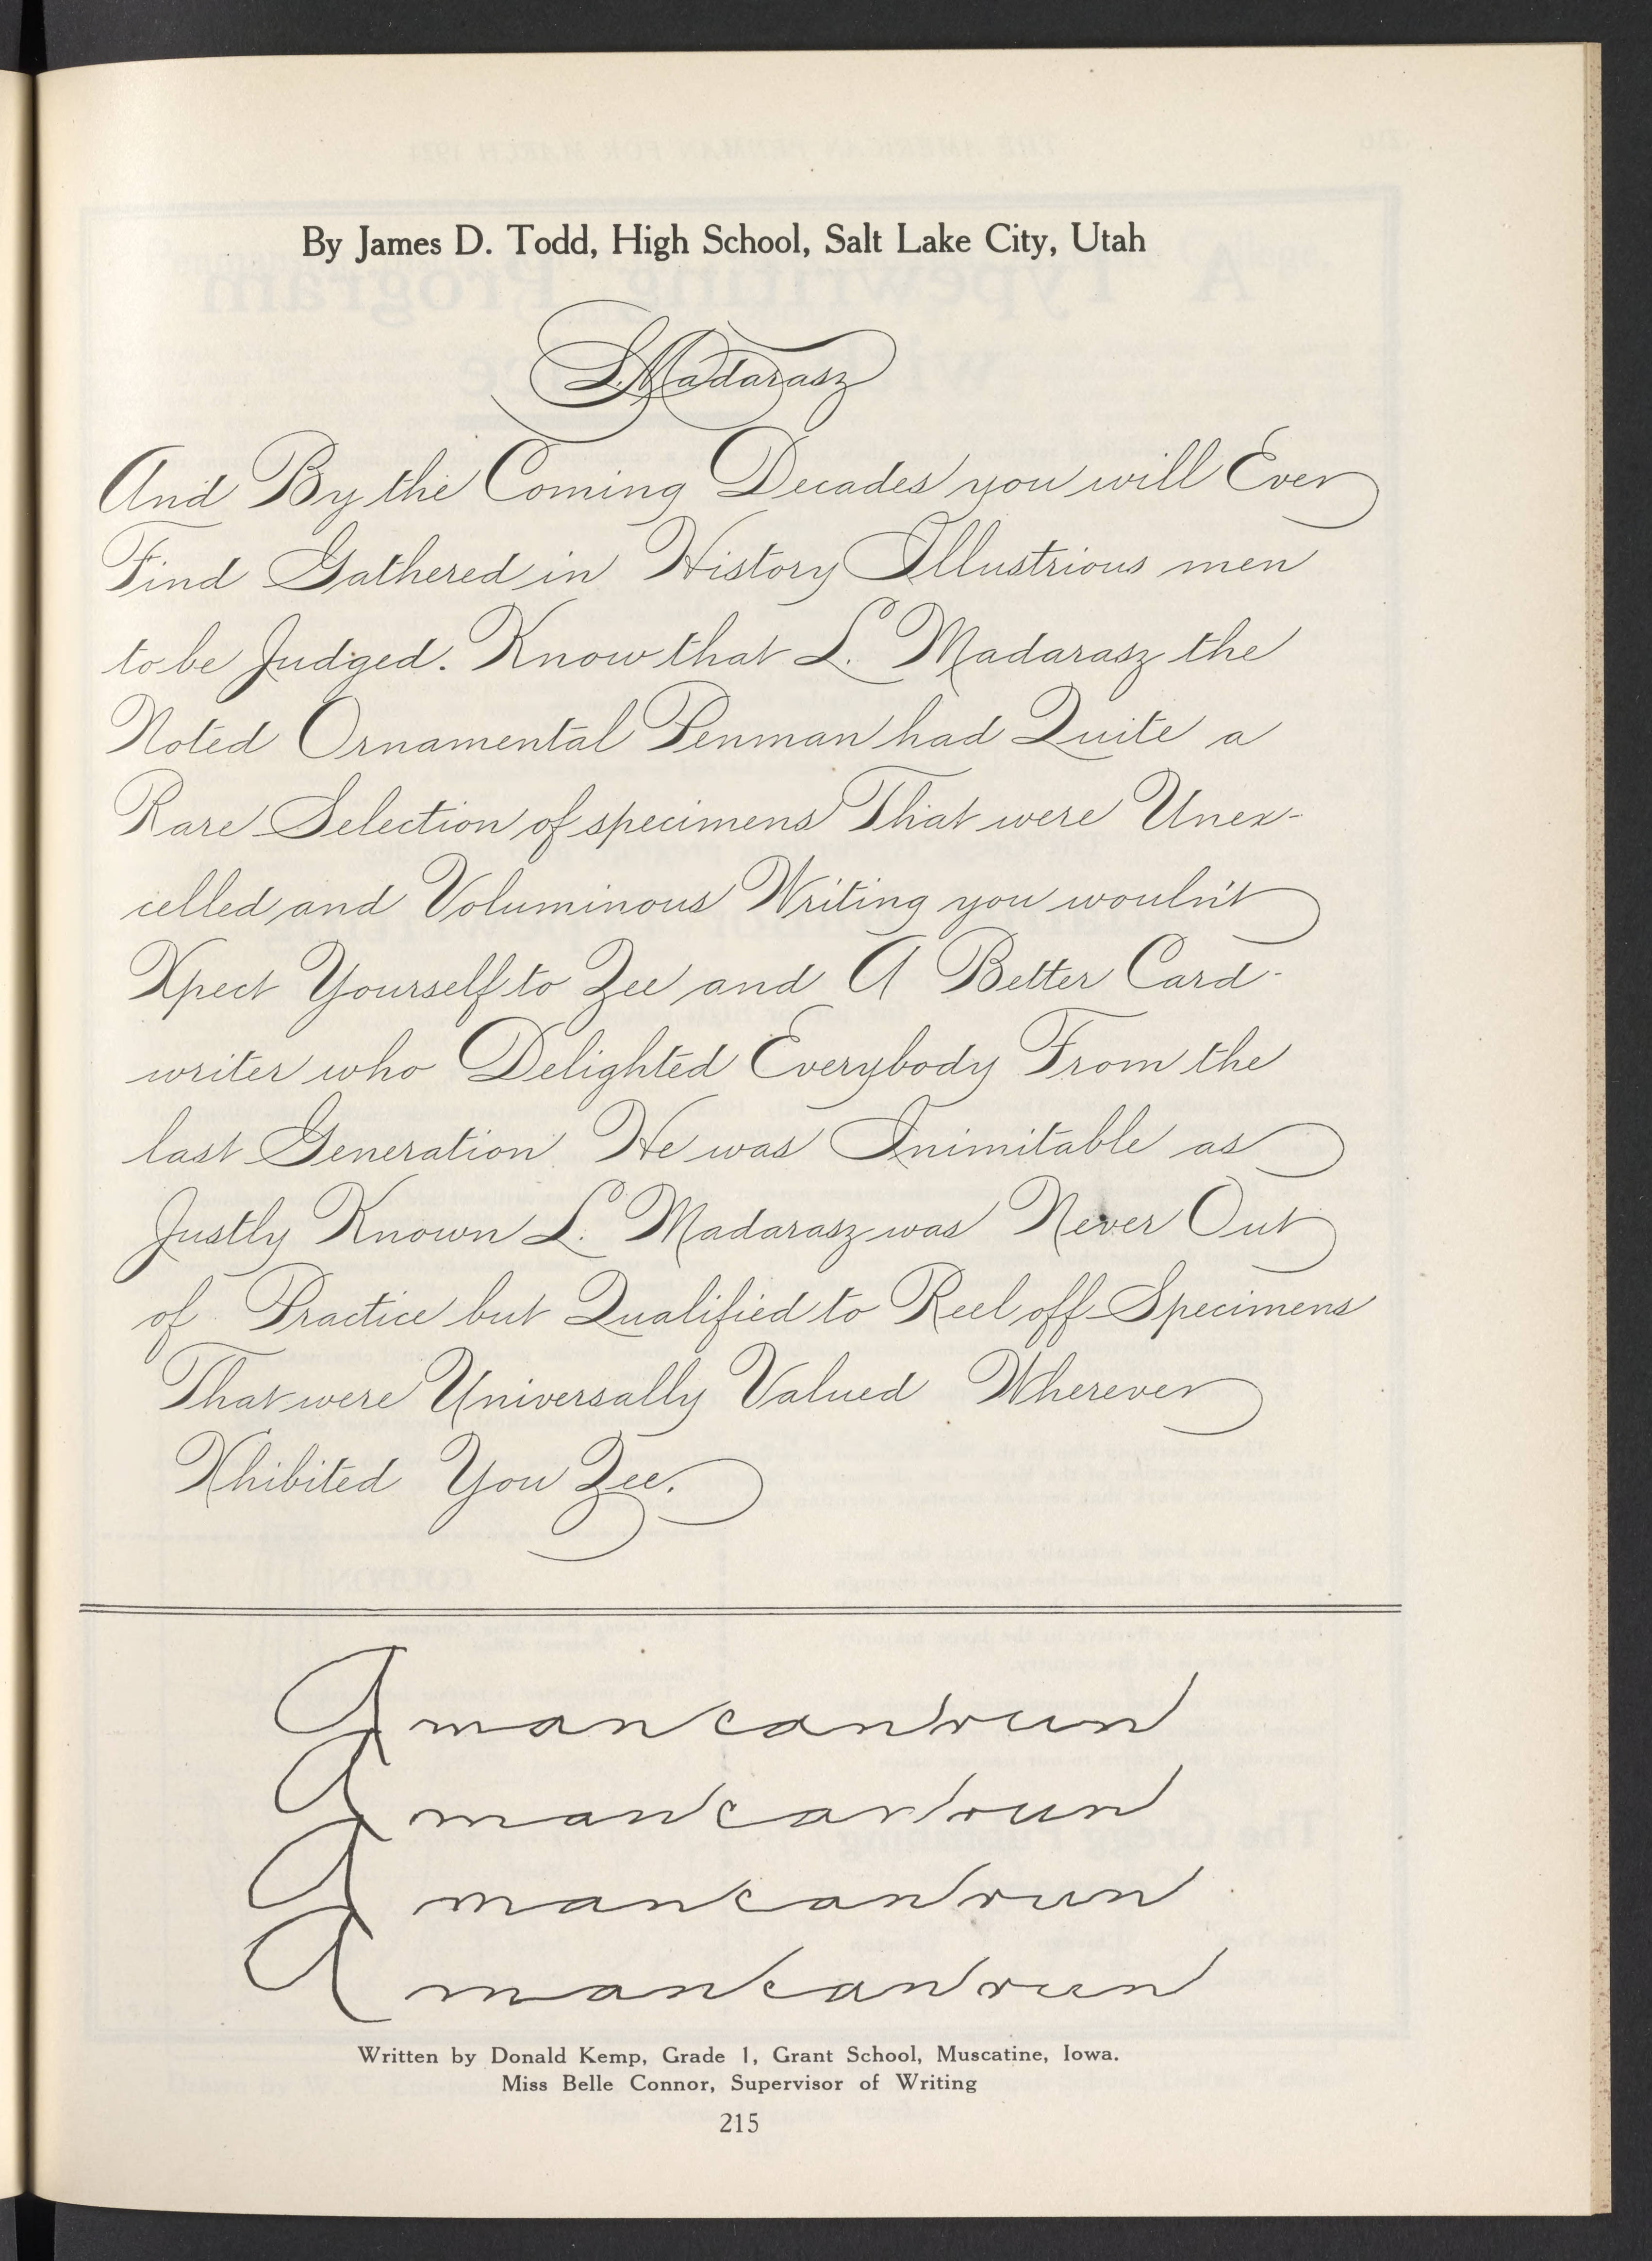 By James D. Todd, High School, Salt Lake City, Utah
L. Madarasz
And By the Coming Decades you will Ever
Find Gathered in History Illustrious men
to be Judged. Know that L. Madarasz the
Noted Ornamental Penman had Quite a
Rare Selection of specimens That were Unex-
celled and Voluminous Writing you wouldn't
Xpect Yourself to Zee and A Better Card-
writer who Delighted Everybody From the
last Generation He was Inimitable as
Justly Known L. Madarasz was Never Out
of Practice but Qualified to Reel off Specimens
That were Universally Valued Wherever
Xhibited You Zee.
A man can run
A man can run
A man can run
A man can run
Written by Donald Kemp, Grade 1, Grant School, Muscatine, Iowa.
Miss Belle Connor, Supervisor of Writing
215